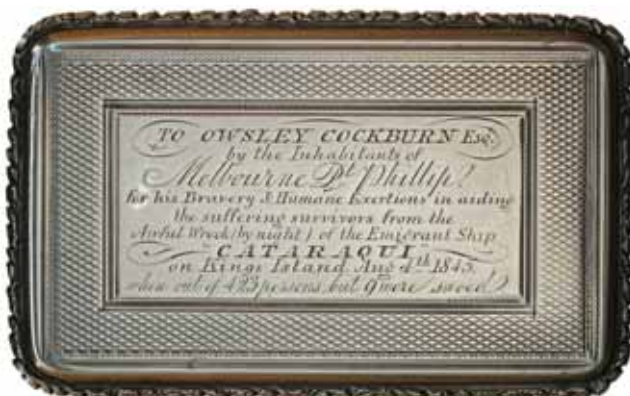 TO OWSLEY COCKBURN Esq.
by the Inhabitants of
Melbourne Pt. Phillip.
for his Bravery & Humane Exertions in aiding
the suffering survivors from the
Awful Wreck (by night) of the Emigrant Ship
CATARAQUI
on Kings Island Aug 4th 1845.
when out of 423 persons but 9 were saved